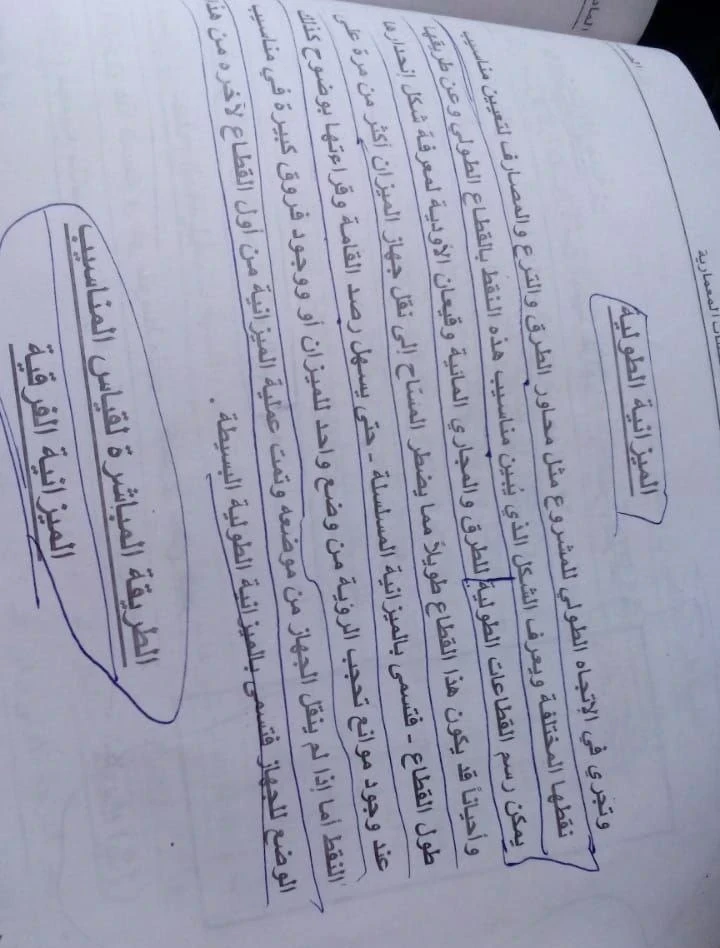 المعمارية
الميزانية الطولية
وتجري في الاتجاه الطولي للمشروع مثل محاور الطرق والترع والمصارف لتعيين مناسيب
نقطها المختلفة ويعرف الشكل الذي يُبين مناسيب هذه النقط بالقطاع الطولي وعن طريقها
يمكن رسم القطاعات الطولية للطرق والمجاري المائية وقيعان الأودية لمعرفة شكل إنحدارها
وأحياناً قد يكون هذا القطاع طويلاً مما يضطر المسّاح إلى نقل جهاز الميزان أكثر من مرة على
طول القطاع - فتسمى بالميزانية المسلسلة - حتى يسهل رصد القامة وقراءتها بوضوح كذلك
عند وجود موانع تحجب الرؤية من وضع واحد للميزان أو ووجود فروق كبيرة في مناسيب
النقط أما إذا لم ينقل الجهاز من موضعه وتمت عملية الميزانية من أول القطاع لآخره من هذا
الوضع للجهاز فتسمى بالميزانية الطولية البسيطة .
الطريقة المباشرة لقياس المناسيب
الميزانية الفرقية